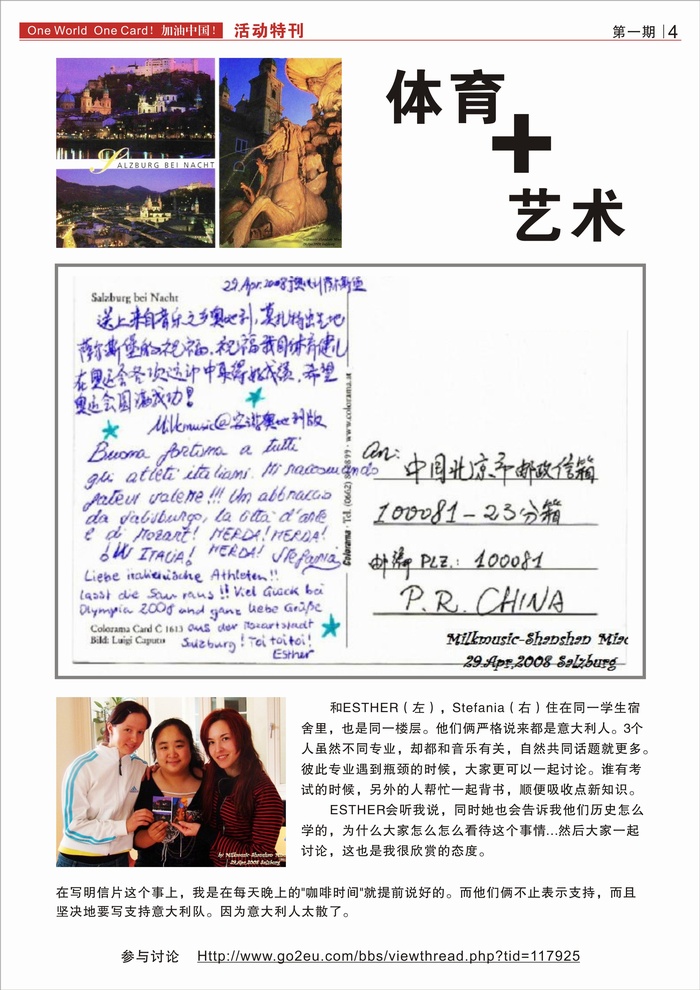 One World One Card! 加油中国!
活动特刊
第一期 4
体育
+
艺术
SALZBURG BEI NACHT
29.Apr.2008
Salzburg bei Nacht
送上来自音乐之乡奥地利,莫扎特出生地
萨尔斯堡的祝福,祝福我国体育健儿
在奥运会各项运动中取得好成绩,希望
奥运会圆满成功!
Milkmusic@奥地利版
Buona fortuna a tutti
gli atleti italiani. Mi raccomando
fatevi valere!!! Un abbraccio
da Salisburgo, la città d'arte
e di Mozart! MERDA! MERDA!
W ITALIA! MERDA! Stefania
Liebe italienische Athleten!!
lasst die Sau raus!! Viel Glück bei
Olympia 2008 und ganz liebe Grüße
Colorama Card C 1613 aus der Mozartstadt
Bild: Luigi Caputo Salzburg! Toi toi toi!
Esther
Colorama · Tel. (0662) · www.colorama.at
An: 中国北京市邮政信箱
100081-23分箱
邮编 PLZ.: 100081
P.R. CHINA
Milkmusic-Shanshan Miao
29.Apr,2008 Salzburg
和ESTHER(左),Stefania(右)住在同一学生宿
舍里,也是同一楼层。他们俩严格说来都是意大利人。3个
人虽然不同专业,却都和音乐有关,自然共同话题就更多。
彼此专业遇到瓶颈的时候,大家更可以一起讨论。谁有考
试的时候,另外的人帮忙一起背书,顺便吸收点新知识。
ESTHER会听我说,同时她也会告诉我他们历史怎么
学的,为什么大家怎么怎么看待这个事情...然后大家一起
讨论,这也是我很欣赏的态度。
by Milkmusic-Shanshan Miao
29.Apr,2008 Salzburg
在写明信片这个事上,我是在每天晚上的"咖啡时间"就提前说好的。而他们俩不止表示支持,而且
坚决地要写支持意大利队。因为意大利人太散了。
参与讨论 Http://www.go2eu.com/bbs/viewthread.php?tid=117925